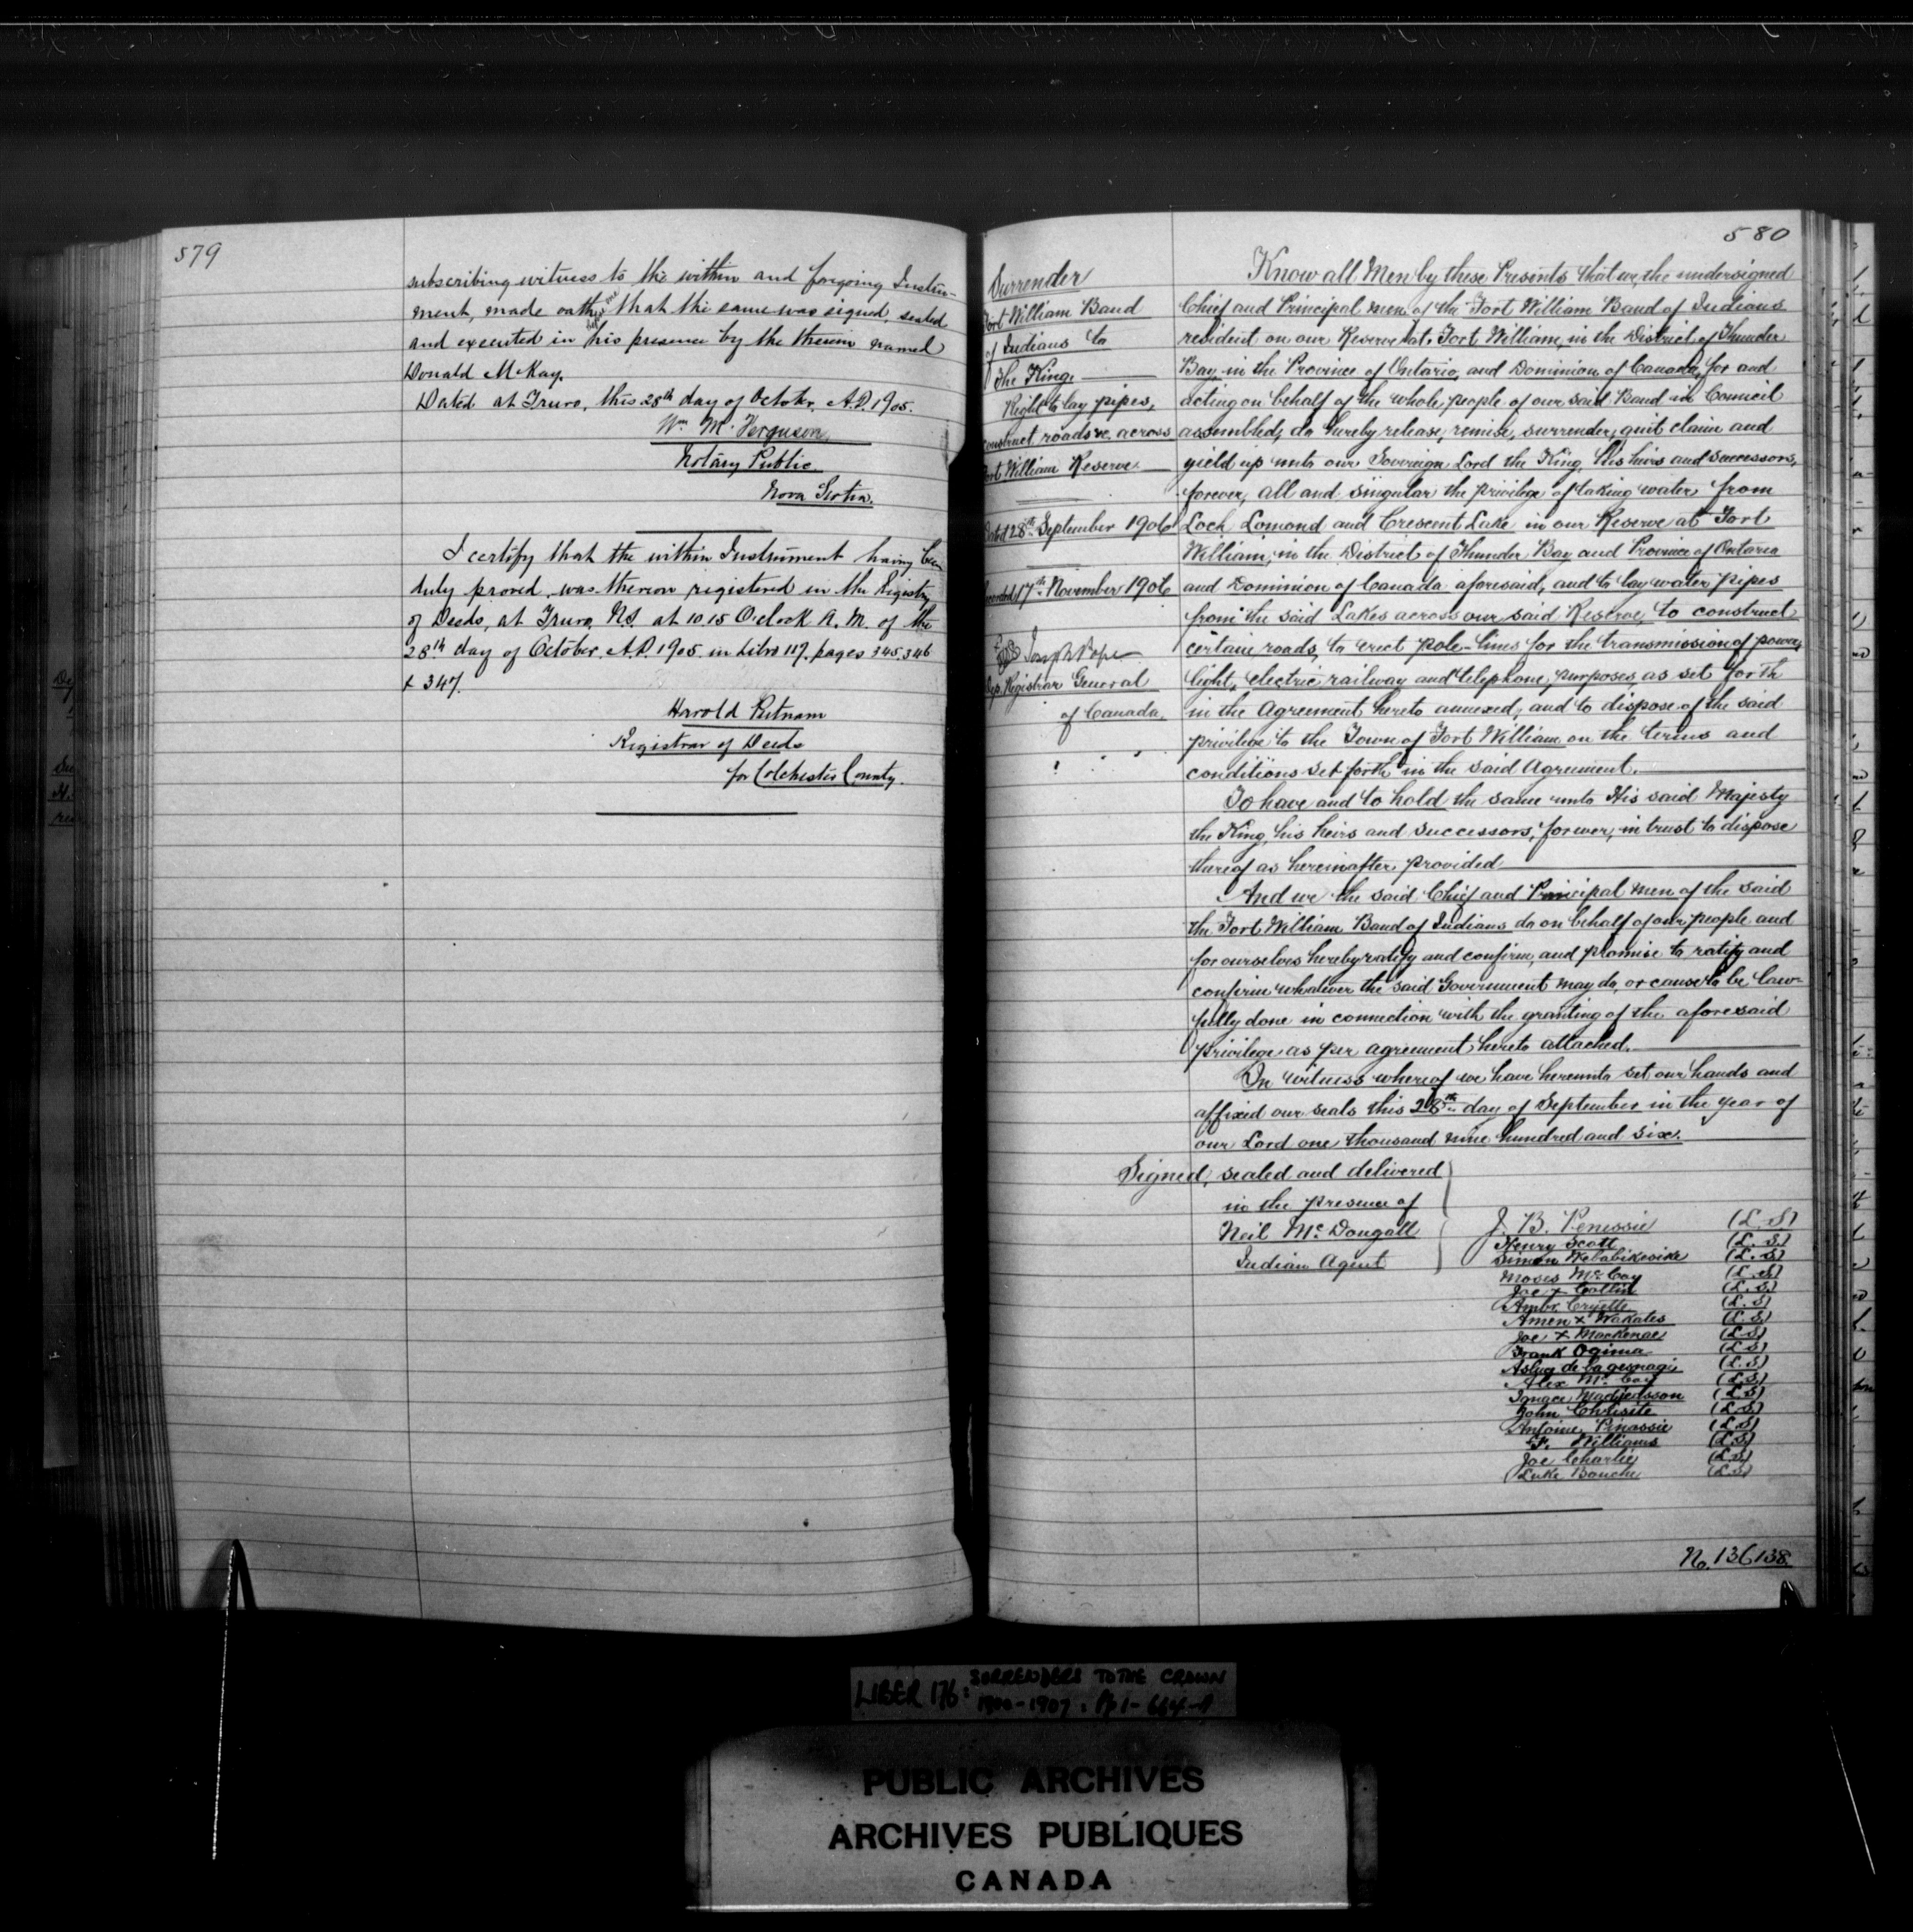 579
subscribing witness to the within and foregoing Instru-
ment, made oath before me that the same was signed, sealed
and executed in his presence by the therein named
Donald McKay.
Dated at Truro, this 28th day of October, A.D. 1905.
Wm. M. Ferguson
Notary Public
Nova Scotia.
I certify that the within Instrument having been
duly proved, was thereon registered in the Registry
of Deeds, at Truro, N.S. at 10 15 O'clock A.M. of the
28th day of October, A.D. 1905 in Libro 119, pages 345, 346
& 347.
Harold Putnam
Registrar of Deeds
for Colchester County.
580
Surrender
Fort William Band
of Indians to
The King.
Right to lay pipes,
construct roads &c. across
Fort William Reserve.
Dated 28th September 1906
Recorded 17th November 1906
Joseph Pope
Dep. Registrar General
of Canada.
Know all Men by these Presents that we, the undersigned
Chief and Principal men of the Fort William Band of Indians
resident on our Reserve at Fort William, in the District of Thunder
Bay, in the Province of Ontario, and Dominion of Canada, for and
acting on behalf of the whole people of our said Band in Council
assembled, do hereby release, remise, surrender, quit claim and
yield up unto our Sovereign Lord the King, His heirs and successors,
forever, all and singular the privilege of taking water from
Loch Lomond and Crescent Lake in our Reserve at Fort
William, in the District of Thunder Bay and Province of Ontario
and Dominion of Canada aforesaid, and to lay water pipes
from the said Lakes across our said Reserve, to construct
certain roads, to erect pole-lines for the transmission of power,
light, electric railway and telephone purposes as set forth
in the Agreement hereto annexed, and to dispose of the said
privilege to the Town of Fort William on the terms and
conditions set forth in the said Agreement.
To have and to hold the same unto His said Majesty
the King, his heirs and successors, forever, in trust to dispose
thereof as hereinafter provided
And we the said Chief and Principal men of the said
the Fort William Band of Indians do on behalf of our people and
for ourselves hereby ratify and confirm, and promise to ratify and
confirm whatever the said Government may do, or cause to be law-
fully done in connection with the granting of the aforesaid
privilege as per agreement hereto attached.
In witness whereof we have hereunto set our hands and
affixed our seals this 28th day of September in the year of
our Lord one thousand nine hundred and six.
Signed, sealed and delivered
in the presence of
Neil McDougall
Indian Agent
J. B. Penessie (L.S)
Henry Scott (L.S.)
Simon Wetabikesike (L.S)
Moses McCoy (L.S)
Joe x Collin (L.S.)
Ambr. Cryette (L.S)
Amen x Wakates (L.S)
Joe x Mackenac (L.S)
Frank Ogima (L.S)
(L.S)
Alex McCoy (L.S.)
Ignace (L.S)
John Chrisite (L.S.)
Antoine Penassie (L.S)
F. Williams (L.S)
Joe Charlie (L.S)
Luke Bouche (L.S)
No. 136138.
LIBER 176: SURRENDERS TO THE CROWN
1900-1907: Pp 1-
PUBLIC ARCHIVES
ARCHIVES PUBLIQUES
CANADA